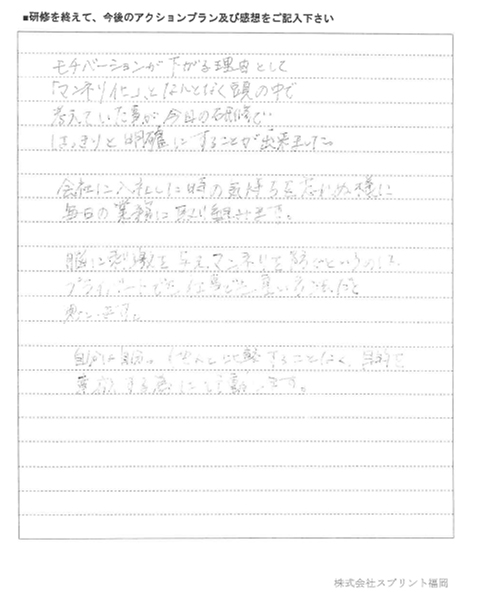 ■研修を終えて、今後のアクションプラン及び感想をご記入下さい
モチベーションが下がる理由として
「マンネリ化」となんとなく頭の中で
考えていた事が今日の研修で
はっきりと明確にすることが出来ました。
会社に入社した時の気持ちを忘れぬ様に
毎日の業務に取り組みます。
脳に刺激を与えマンネリを防ぐというのは、
プライベートでも仕事でも重い
思います。
自分は自分。
比較することなく、
株式会社スプリント福岡